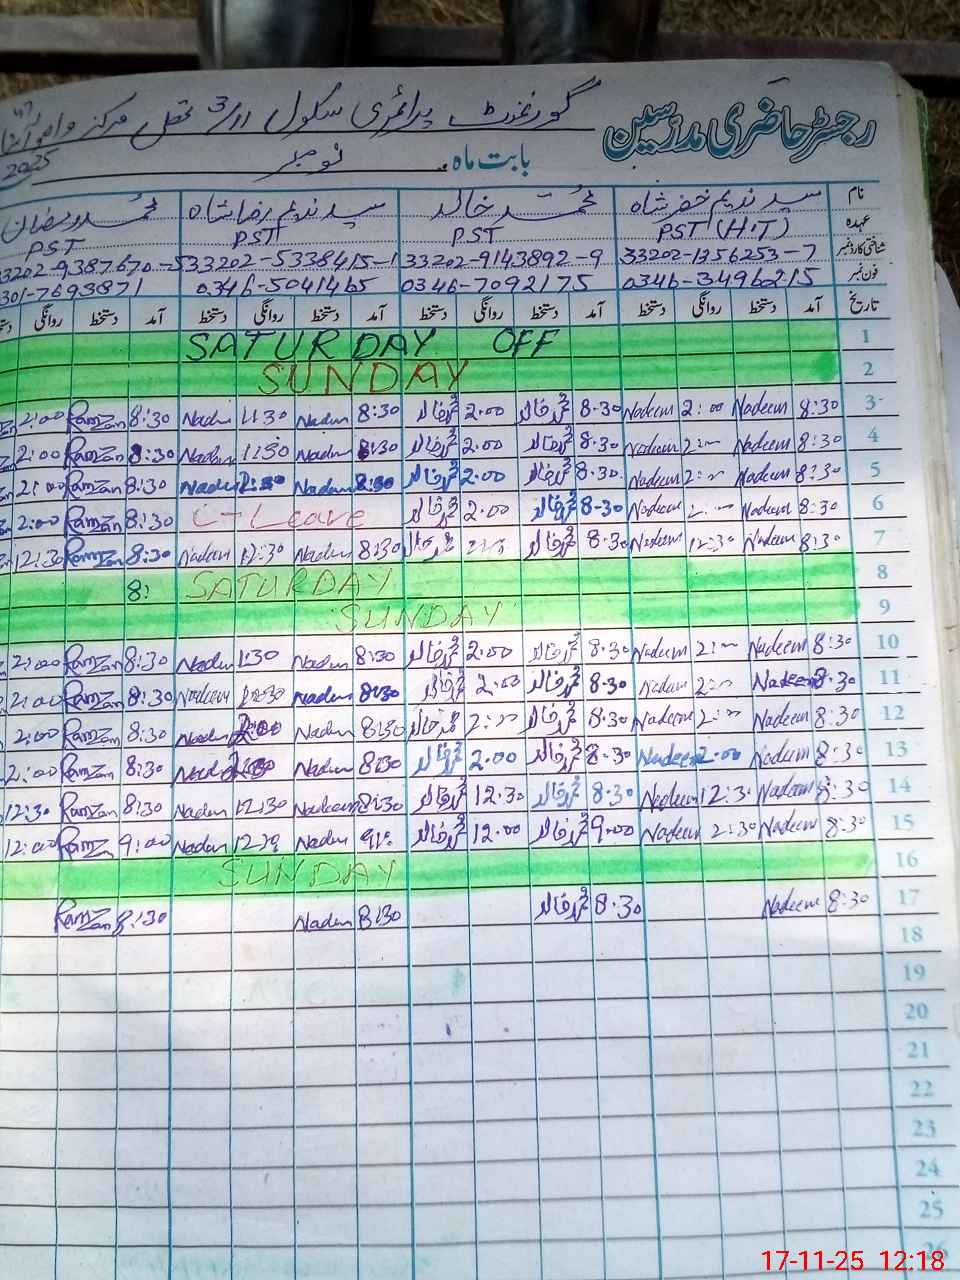 رجسٹر حاضری مدرسین
گورنمنٹ پرائمری سکول 3/ مرکز
بابت ماہ نومبر 2025
نام سید ندیم خضر شاہ محمد خالد سید ندیم رضا شاہ محمد رمضان
عہدہ PST (H.T) PST PST PST
شناختی کارڈ نمبر 33202-1256253-7 33202-9143892-9 33202-5338415-1 33202-9387670-5
فون نمبر 0346-3496215 0346-7092175 0346-5041465 0301-7693871
تاریخ آمد دستخط روانگی دستخط آمد دستخط روانگی دستخط آمد دستخط روانگی دستخط آمد دستخط روانگی
1 SATURDAY OFF
2 SUNDAY
3 8:30 Nadeem 2:00 Nadeem 8.30 محمد خالد 2.00 محمد خالد 8:30 Nadeem 1:30 Nadeem 8:30 Ramzan 2:00
4 8:30 Nadeem 2:— Nadeem 8.30 محمد خالد 2.00 محمد خالد 8:30 Nadeem 1:30 Nadeem 8:30 Ramzan 2:00
5 8:30 Nadeem 2:— Nadeem 8.30 محمد خالد 2.00 محمد خالد 8:30 Nadeem Nadeem 8:30 Ramzan 2:00
6 8:30 Nadeem 2:— Nadeem 8-30 محمد خالد 2.00 محمد خالد Leave 8:30 Ramzan 2:00
7 8:30 Nadeem 12:30 Nadeem 8.30 محمد خالد محمد خالد 8:30 Nadeem 12:30 Nadeem 8:30 Ramzan 12:30
8 SATURDAY 8:
9 SUNDAY
10 8:30 Nadeem 2:— Nadeem 8.30 محمد خالد 2.00 محمد خالد 8:30 Nadeem 1:30 Nadeem 8:30 Ramzan 2:00
11 8:30 Nadeem 2:— Nadeem 8.30 محمد خالد 2.00 محمد خالد 8:30 Nadeem Nadeem 8:30 Ramzan 2:00
12 8:30 Nadeem 2:— Nadeem 8.30 محمد خالد 2:— محمد خالد 8:30 Nadeem 2:00 Nadeem 8:30 Ramzan 2:00
13 8:30 Nadeem 2.00 Nadeem 8.30 محمد خالد 2.00 محمد خالد 8:30 Nadeem Nadeem 8:30 Ramzan 2:00
14 8:30 Nadeem 12:30 Nadeem 8.30 محمد خالد 12.30 محمد خالد 8:30 Nadeem 12:30 Nadeem 8:30 Ramzan 12:30
15 8:30 Nadeem 2:30 Nadeem 9.00 محمد خالد 12.00 محمد خالد Nadeem Nadeem 9:00 Ramzan 12:00
16 SUNDAY
17 8:30 Nadeem 8.30 محمد خالد 8:30 Nadeem 8:30 Ramzan
18
19
20
21
22
23
24
25
26
17-11-25 12:18